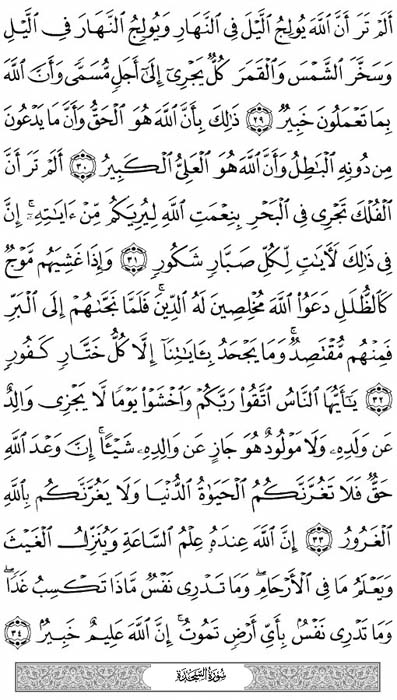 أَلَمۡ تَرَ أَنَّ ٱللَّهَ يُولِجُ ٱلَّيۡلَ فِي ٱلنَّهَارِ وَيُولِجُ ٱلنَّهَارَ فِي ٱلَّيۡلِ
وَسَخَّرَ ٱلشَّمۡسَ وَٱلۡقَمَرَۖ كُلّٞ يَجۡرِيٓ إِلَىٰٓ أَجَلٖ مُّسَمّٗى وَأَنَّ ٱللَّهَ
بِمَا تَعۡمَلُونَ خَبِيرٞ ٢٩ ذَٰلِكَ بِأَنَّ ٱللَّهَ هُوَ ٱلۡحَقُّ وَأَنَّ مَا يَدۡعُونَ
مِن دُونِهِ ٱلۡبَٰطِلُ وَأَنَّ ٱللَّهَ هُوَ ٱلۡعَلِيُّ ٱلۡكَبِيرُ ٣٠ أَلَمۡ تَرَ أَنَّ
ٱلۡفُلۡكَ تَجۡرِي فِي ٱلۡبَحۡرِ بِنِعۡمَتِ ٱللَّهِ لِيُرِيَكُم مِّنۡ ءَايَٰتِهِۦٓۚ إِنَّ
فِي ذَٰلِكَ لَأٓيَٰتٖ لِّكُلِّ صَبَّارٖ شَكُورٖ ٣١ وَإِذَا غَشِيَهُم مَّوۡجٞ
كَٱلظُّلَلِ دَعَوُاْ ٱللَّهَ مُخۡلِصِينَ لَهُ ٱلدِّينَ فَلَمَّا نَجَّىٰهُمۡ إِلَى ٱلۡبَرِّ
فَمِنۡهُم مُّقۡتَصِدٞۚ وَمَا يَجۡحَدُ بِـَٔايَٰتِنَآ إِلَّا كُلُّ خَتَّارٖ كَفُورٖ
٣٢ يَٰٓأَيُّهَا ٱلنَّاسُ ٱتَّقُواْ رَبَّكُمۡ وَٱخۡشَوۡاْ يَوۡمٗا لَّا يَجۡزِي وَالِدٌ
عَن وَلَدِهِۦ وَلَا مَوۡلُودٌ هُوَ جَازٍ عَن وَالِدِهِۦ شَيۡـًٔاۚ إِنَّ وَعۡدَ ٱللَّهِ
حَقّٞۖ فَلَا تَغُرَّنَّكُمُ ٱلۡحَيَوٰةُ ٱلدُّنۡيَا وَلَا يَغُرَّنَّكُم بِٱللَّهِ
ٱلۡغَرُورُ ٣٣ إِنَّ ٱللَّهَ عِندَهُۥ عِلۡمُ ٱلسَّاعَةِ وَيُنَزِّلُ ٱلۡغَيۡثَ
وَيَعۡلَمُ مَا فِي ٱلۡأَرۡحَامِۖ وَمَا تَدۡرِي نَفۡسٞ مَّاذَا تَكۡسِبُ غَدٗاۖ
وَمَا تَدۡرِي نَفۡسُۢ بِأَيِّ أَرۡضٖ تَمُوتُۚ إِنَّ ٱللَّهَ عَلِيمٌ خَبِيرُۢ ٣٤
سُورَةُ السَّجۡدَةِ